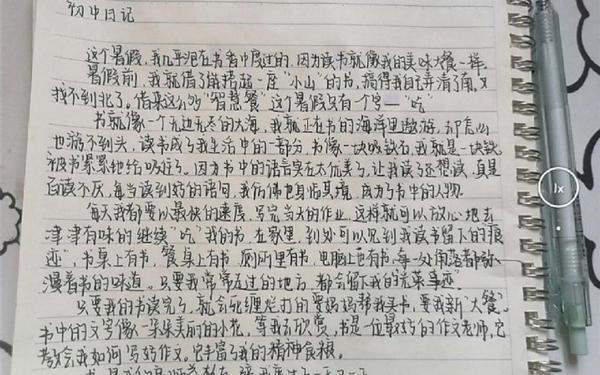 初中日记
这个暑假,我几乎泡在书香中度过的,因为读书就像我的美味大餐一样。
暑假前,我就借了能搭起一座“小山”的书,搞得我自己弄清了南,又
找不到北了。借来这么多“智慧餐”这个暑假只有一个字——“吃”
书就像一个无边无尽的大海,我就正在书的海洋里遨游,却怎么
也游不到头,读书成了我生活中的一部分,书像一块吸铁石,我就是一块铁
被书累累地给吸住了。因为书中的语言实在太优美了,让我读了还想读,真是
百读不厌,每当读到好的语句,我仿佛也身临其境,成为了书中的人物。
每天我都要以最快的速度,写完当天的作业,这样就可以放心地去
津津有味的继续“吃”我的书,在家里,到处可以见到我读书留下的“痕
迹”,书桌上有书,餐桌上有书,厕所里有书,电脑上也有书,每一处角落都弥
漫着书的味道。只要我常常去过的地方,都会留下我的“光荣事迹”
只要我的书读完了,就会死缠烂打的要妈妈帮我买书,要我新“大餐”。
书中的文字像一朵朵美丽的小花,等我去欣赏,书是一位最好的作文老师,它
教会我如何写好作文。它丰富了我的精神食粮。